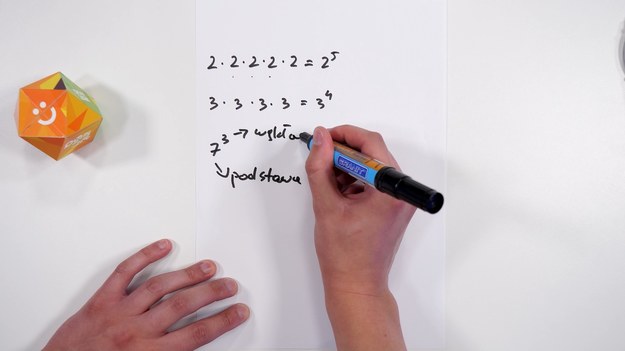 2·2·2·2·2 = 2⁵
3·3·3·3 = 3⁴
7³ → wykła
↘ podstawa